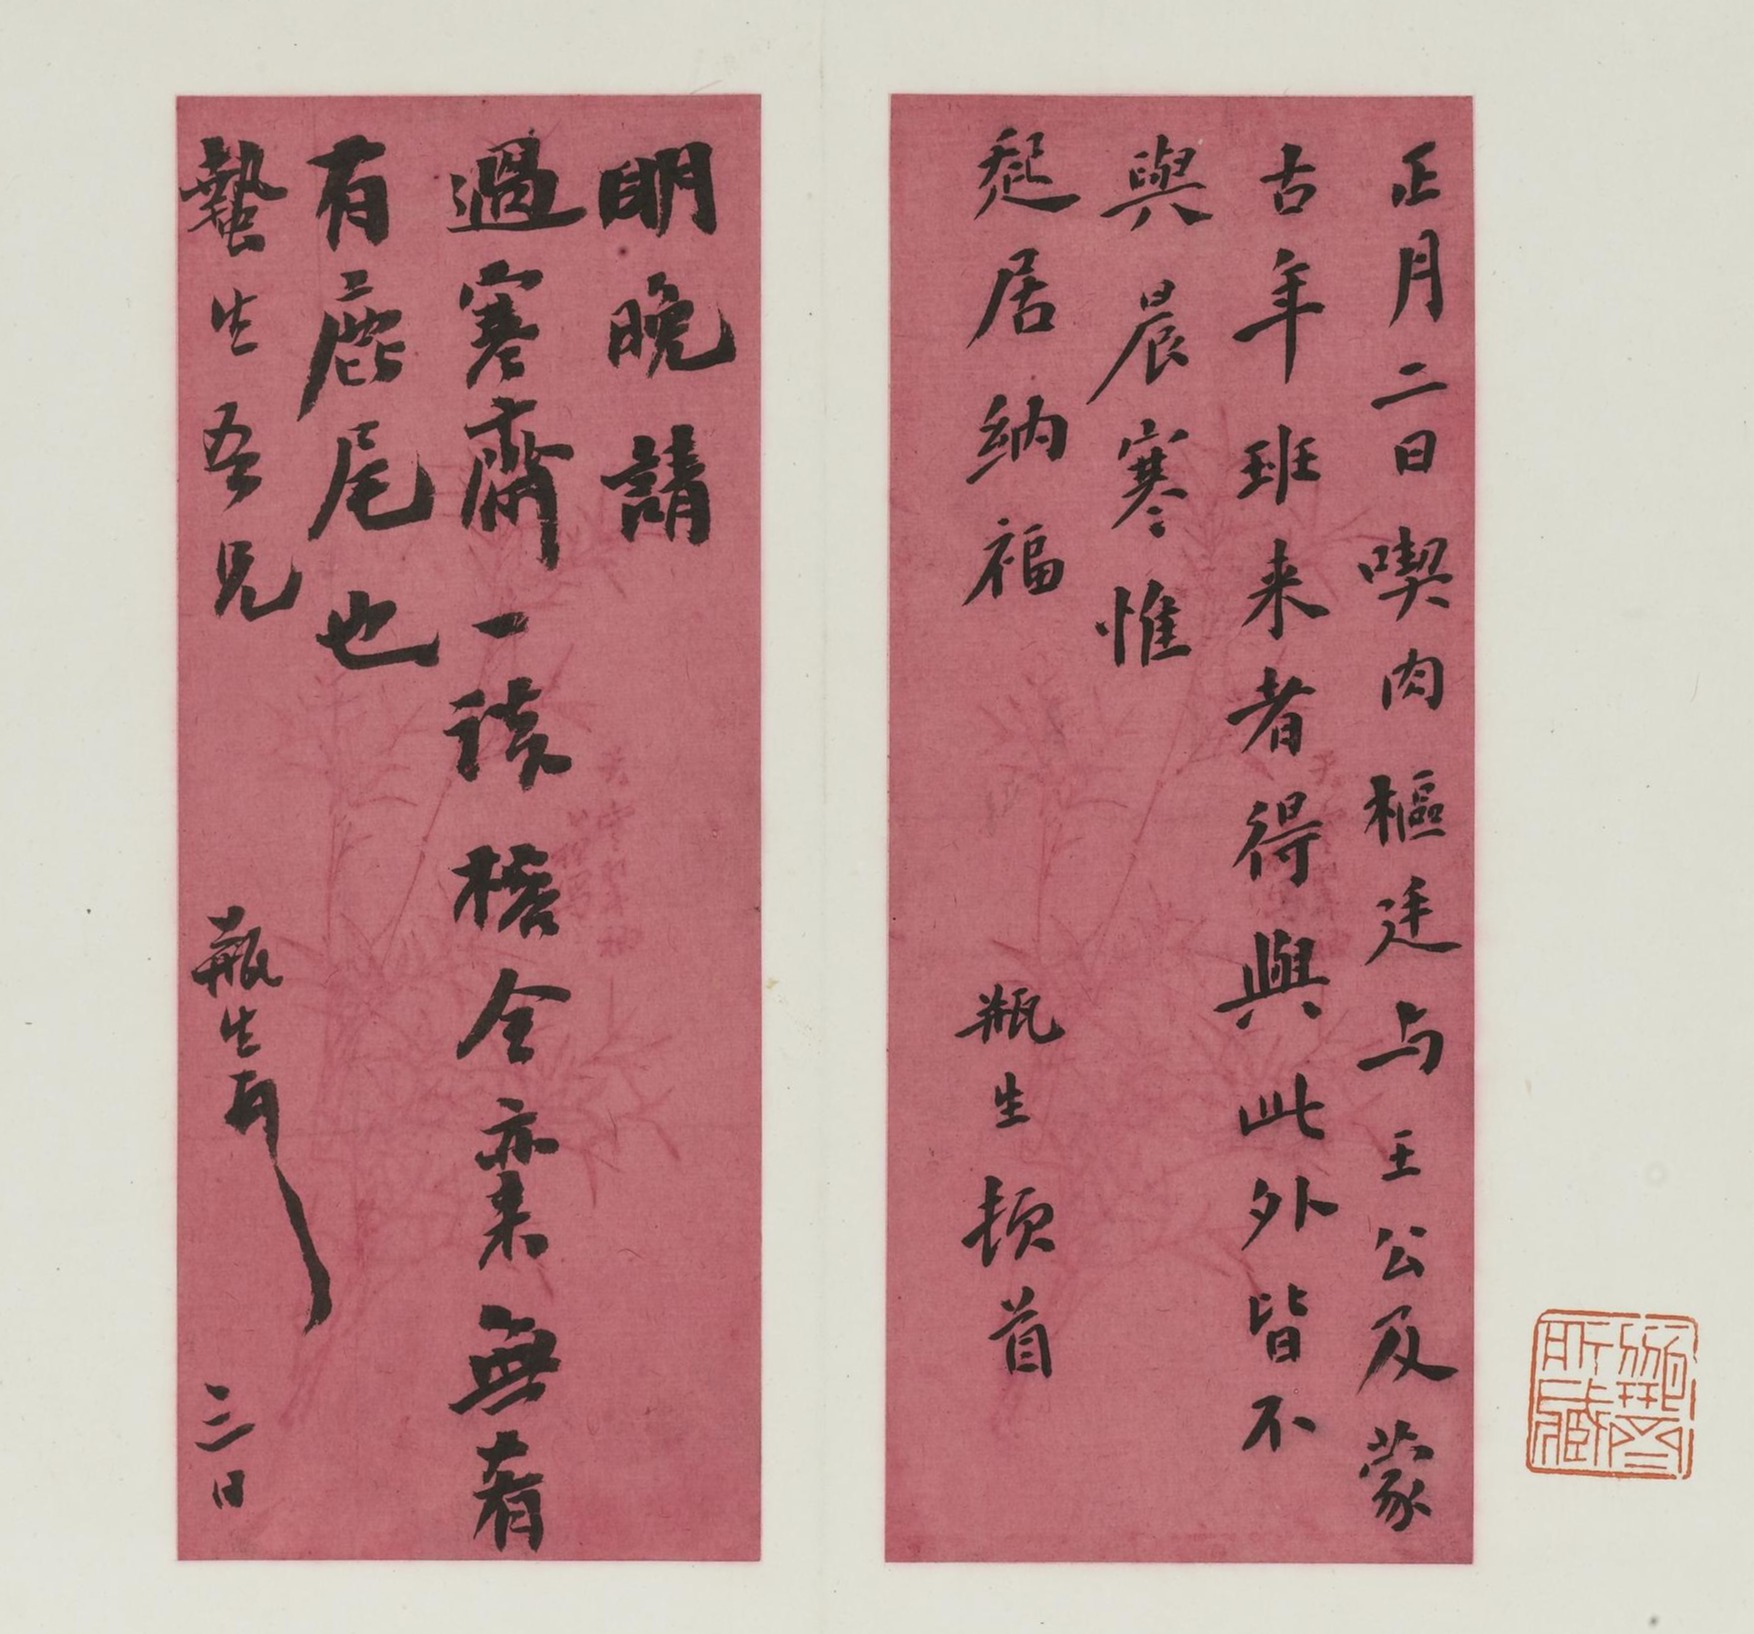 正月二日喫肉樞廷与王公及蒙
古年班来者得與此外皆不
與晨寒惟
起居納福
瓶生頓首
明晚請
過寒齋一談樵令亦来無肴
有鹿尾也
蟄生吾兄
瓶生
三日
所藏